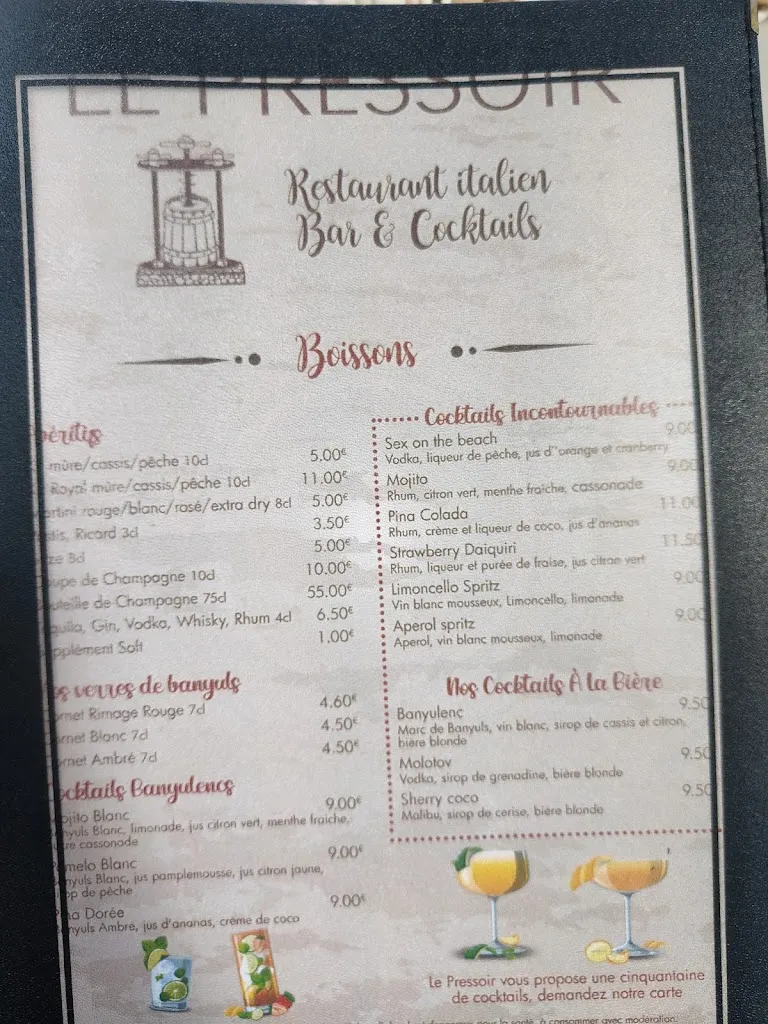 LE PRESSOIR
Restaurant italien
Bar & Cocktails
Boissons
péritifs
mûre/cassis/pêche 10cl 5.00€
Royal mûre/cassis/pêche 10cl 11.00€
artini rouge/blanc/rosé/extra dry 8cl 5.00€
stis, Ricard 3cl 3.50€
ze 8cl 5.00€
oupe de Champagne 10cl 10.00€
outeille de Champagne 75cl 55.00€
quila, Gin, Vodka, Whisky, Rhum 4cl 6.50€
pplément Soft 1.00€
s verres de banyuls
ornet Rimage Rouge 7cl 4.60€
ornet Blanc 7cl 4.50€
ornet Ambré 7cl 4.50€
ocktails Banyulencs
ojito Blanc 9.00€
nyuls Blanc, limonade, jus citron vert, menthe fraiche,
cre cassonade
melo Blanc 9.00€
nyuls Blanc, jus pamplemousse, jus citron jaune,
op de pêche
na Dorée 9.00€
nyuls Ambre, jus d'ananas, crème de coco
Cocktails Incontournables
Sex on the beach 9.00
Vodka, liqueur de pêche, jus d''orange et cranberry
Mojito 9.00
Rhum, citron vert, menthe fraiche, cassonade
Pina Colada 11.00
Rhum, crème et liqueur de coco, jus d'ananas
Strawberry Daiquiri 11.50
Rhum, liqueur et purée de fraise, jus citron vert
Limoncello Spritz 9.00
Vin blanc mousseux, Limoncello, limonade
Aperol spritz 9.00
Aperol, vin blanc mousseux, limonade
Nos Cocktails À la Bière
Banyulenc 9.50
Marc de Banyuls, vin blanc, sirop de cassis et citron,
bière blonde
Molotov 9.50
Vodka, sirop de grenadine, bière blonde
Sherry coco 9.50
Malibu, sirop de cerise, bière blonde
Le Pressoir vous propose une cinquantaine
de cocktails, demandez notre carte
pour la santé, à consommer avec modération.